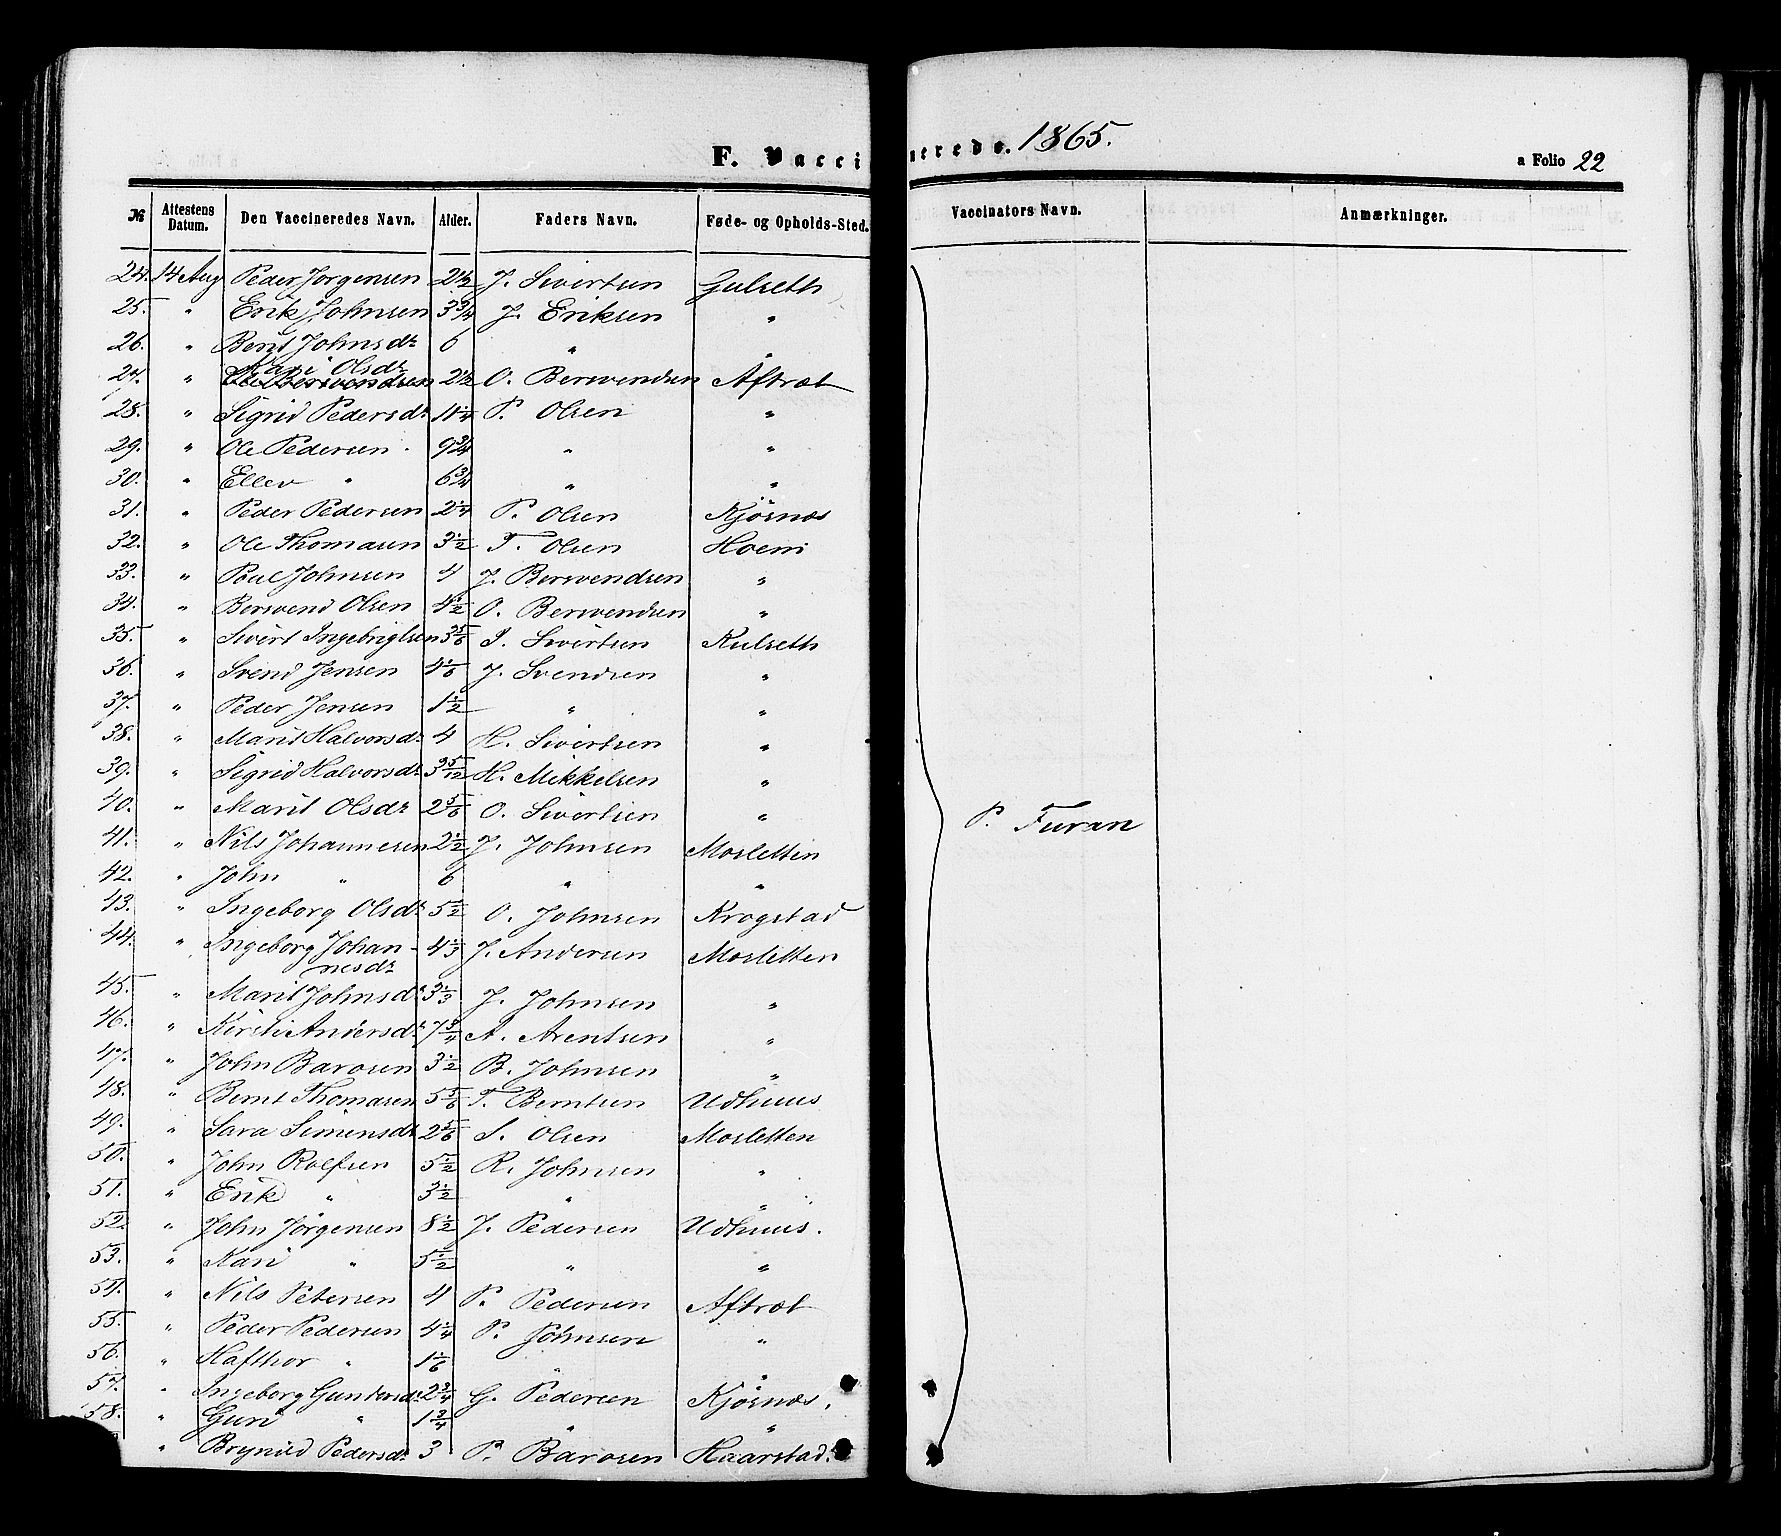 F. Vaccinerede. 1865. a Folio 22
№ Attestens Datum. Den Vaccineredes Navn. Alder. Faders Navn. Føde- og Opholds-Sted. Vaccinators Navn. Anmærkninger.
24. 14 Aug Peder Jørgensen 2 1/2 J. Sivertsen Gulseth
25. " Erik Johnsen 3 3/4 J. Eriksen "
26. " Berit Johnsdr 6 " "
Mari Olsdr
27. " Ole Bersvendsen 2 1/2 O. Bersvendsen Aftræt
28. " Sigrid Pedersdr 11 1/4 P. Olsen "
29. " Ole Pedersen. 9 3/4 " "
30. " Ellev " 6 3/4 " "
31. " Peder Pedersen 2 1/4 P. Olsen Kjøsnæs
32. " Ole Thomasen 3 1/2 T. Olsen Hoem
33. " Poul Johnsen 4 J. Bersvendsen "
34. " Bersvend Olsen 4 1/2 O. Bersvendsen "
35. " Sivert Ingebrigtsen 3 5/6 I. Sivertsen Kulseth
36. " Svend Jensen 4 1/6 J. Svendsen "
37. " Peder Jensen 1 1/2 " "
38. " Marit Halvorsdr 4 H. Sivertsen "
39. " Sigrid Halvorsdr 3 5/12 H. Mikkelsen "
40. " Marit Olsdr 2 5/6 O. Sivertsen "
P. Furan
41. " Nils Johannesen 2 1/2 J. Johnsen Mosletten
42. " John " 6 " "
43. " Ingeborg Olsdr 5 1/2 O. Johnsen Krogstad
44. " Ingeborg Johan- 4 1/3 J. Andersen Mosletten
nesdr
45. " Marit Johnsdr 3 1/3 J. Johnsen "
46. " Kirsti Andersdr 7 3/4 A. Arentsen "
47. " John Barosen 3 1/2 B. Johnsen "
48. " Bernt Thomasen 5 5/6 T. Berntsen Udhuus
49. " Sara Simensdr 2 5/6 S. Olsen Mosletten
50. " John Rolfsen 5 1/2 R. Johnsen "
51. " Erik " 3 1/2 " "
52. " John Jørgensen 8 1/2 J. Pedersen Udhuus.
53. " Kari " 5 1/2 " "
54. " Nils Petersen 4 P. Pedersen Aftræt
55. " Peder Pedersen 4 1/4 P. Johnsen "
56. " Hafthor " 1 1/6 " "
57. " Ingeborg Gundersdr 2 3/4 G. Pedersen Kjøsnæs.
58. " Guri " 1 3/4 " "
" Brynild Pedersdr 3 P. Barosen Haarstad.